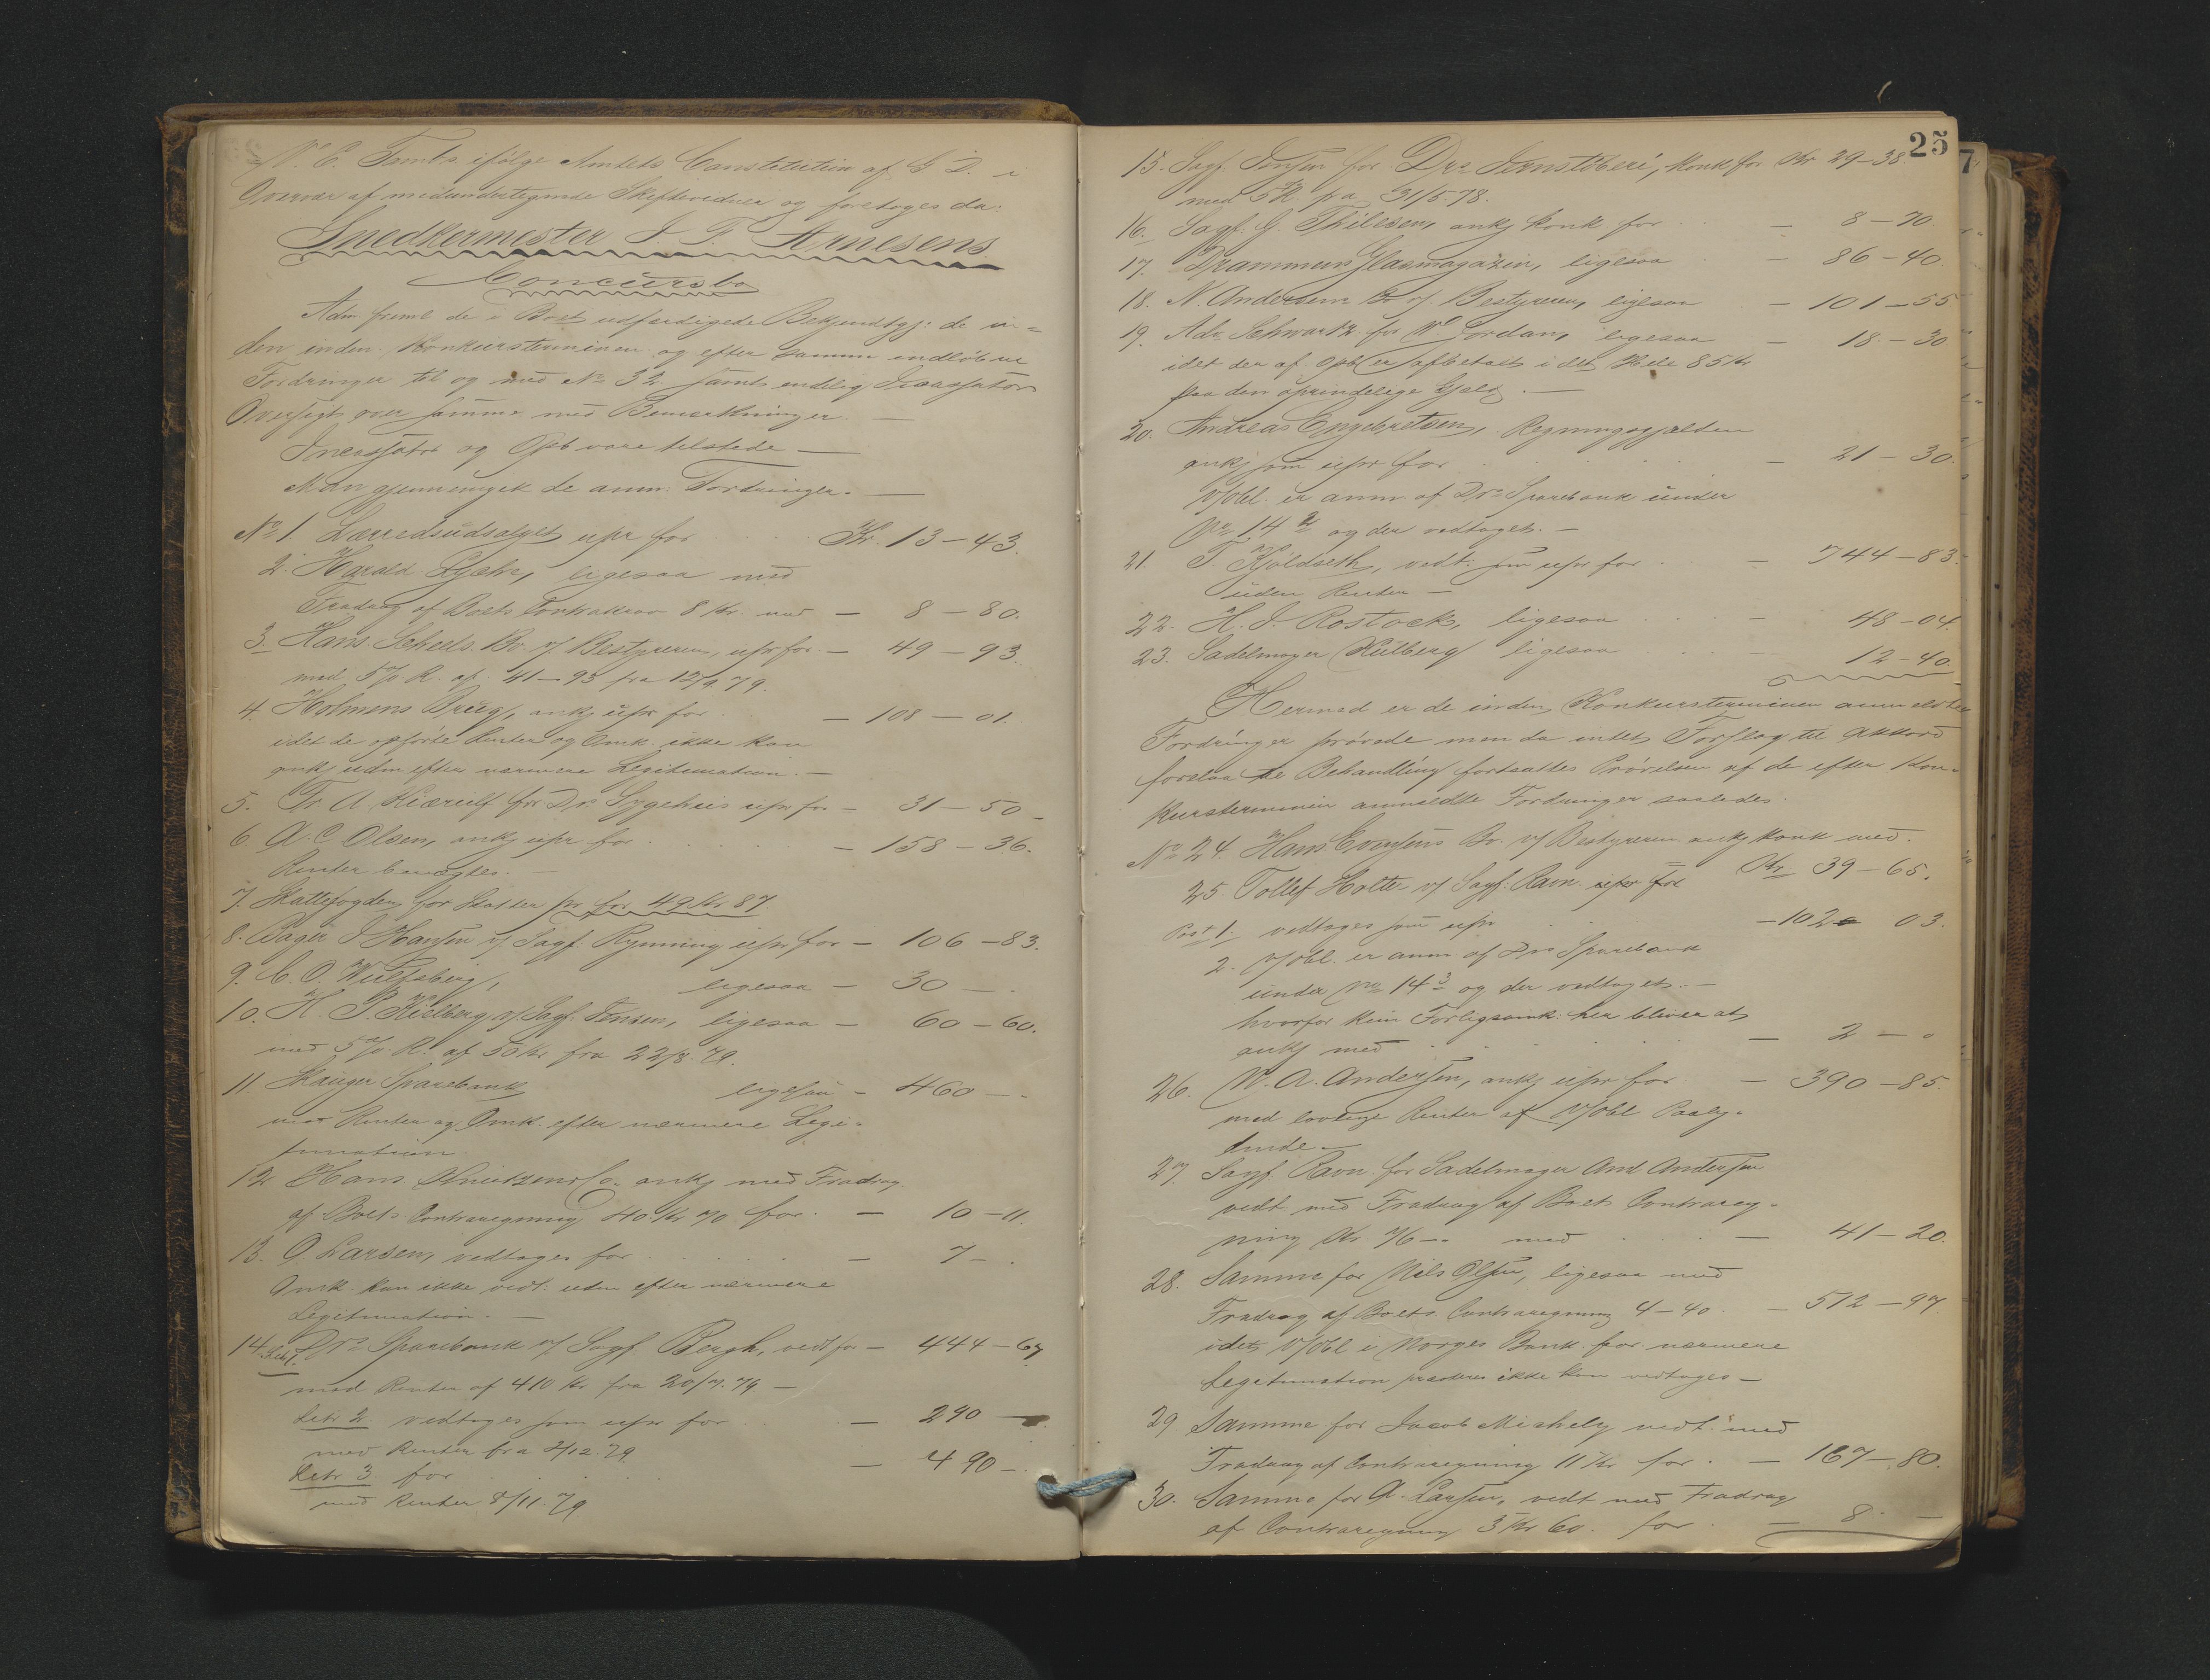 N. C. Tambs ifölge Amtets Constitution af G. D. i
Overvær af medundertegnede Skiftevidner og foretoges da:
Snedkermester J. T. Arnesens
Concursbo
Adm. freml. de i Boet udfærdigede Bekjendtgj: de in-
den inden Konkursterminen og efter samme indlöbne
Fordringer til og med No 32 samt endelig Incassators
Oversigt over samme med Bemærkninger. —
Incassator og Opb vare tilstede —
Man gjennemgik de anm: Fordringer. —
No 1 Lærredsudsalget upr for Kr. 13-43.
2. Harald Lyche, ligesaa med
Fradrag af Boets Contrakrav 8 Kr. med — 8-80.
3. Hans Scheels Bo v/ Bestyreren, upr for — 49-93.
med 5% R. af 41-93 fra 12/9 79.
4 Holmens Brug, ankj upr for — 108-01.
idet de opförte Renter og Omk. ikke kan
ankj uden efter nærmere Legitimation. —
5. Fr. A. Kiærulf for Dr. Sygehus upr for — 31-50
6. A. C. Olsen, ankj upr for — 158-36.
Renter benegtes. —
7. Skattefogden for Skatter pr for 49 Kr 87
8. Bager J Hansen v/ Sagf. Rynning upr for — 106-83.
9. C. O. Wulfsberg, ligesaa — 30 —
10. H. P. Kielberg v/ Sagf. Jensen, ligesaa — 60-60.
med 5% R. af 50 Kr fra 22/8. 79.
11. Skauger Sparebank ligesaa — 460 —
med Renter og Omk. efter nærmere Legi-
timation
12 Hans Knutzen & Co. ankj med Fradrag
af Boets Contraregning 40 Kr 70 for. — 10-11.
13. O. Larsen, vedtages for — 7 —
Omk. kan ikke vedt: uden efter nærmere
Legitimation. —
14. Litr 1. Drs Sparebank v/ Sagf Bergh, vedt for — 444-67
med Renter af 410 Kr fra 20/7. 79 —
Litr 2. vedtages som upr for — 290 —
med Renter fra 2/12. 79
Litr 3 for — 490 —
med Renter 8/11. 79
25
15. Sagf. Jensen for Drs Jernstöberi, konk for Kr 29-38.
med 5% R. fra 31/5. 78.
16. Sagf. G. Thilesen, ankj konk for — 8-70.
17. Drammens Glasmagazin, ligesaa — 86-40.
18. N. Andersens Bo v/ Bestyreren, ligesaa — 101-55
19. Adv. Schwartz for W. Jordan, ligesaa — 18-30
idet der af Opb er afbetalt i det Hele 85 Kr
paa den oprindelige Gjeld. —
20. Andreas Engebretsen, Regningsgjælden
ankj som upr for — 21-30.
V/Obl. er anm. af Drs Sparebank under
No 14 2 og der vedtaget. —
21. T. Kjöldseth, vedt: som upr for — 744-83.
uden Renter —
22. H. J. Rostock, ligesaa — 48-04.
23. Sadelmager Hülberg ligesaa — 12-40.
Hermed er de inden Konkursterminen anmeldte
Fordringer prövede men da intet Forslag til Akkord
forelaa til Behandling fortsattes Prövelsen af de efter Kon-
kursterminen anmeldte Fordringer saaledes.
No 24. Hans Evensens Bo. v/ Bestyreren ankj konk med.
Kr 39-65.
25. Tollef Holte v/ Sagf. Ravn. upr for
Post 1. vedtages som upr — 102 03.
2. V/Obl. er anm. af Drs Sparebank
under No 14 3 og der vedtaget. —
hvorfor kun Forligsomk: her bliver at
ankj med — 2 —
26. N. A. Andersen, ankj upr for — 390-85.
med lovlige Renter af V/Obl Paaly-
dende —
27 Sagf. Ravn for Sadelmager And Andersen
vedt med Fradrag af Boets Contrareg-
ning Kr 76 — med — 41-20.
28. Samme for Nils Olsen, ligesaa med
Fradrag af Boets Contraregning 4-40 — 512-97.
idet V/Obl i Norges Bank før nærmere
Legitimation præsteres ikke kan vedtages —
29 Samme for Jacob Michely vedt: med
Fradrag af Contraregning 11 Kr for — 167-80.
30. Samme for A. Larsen, vedt med Fradrag
af Contraregning 3 Kr 60. for — 8 —